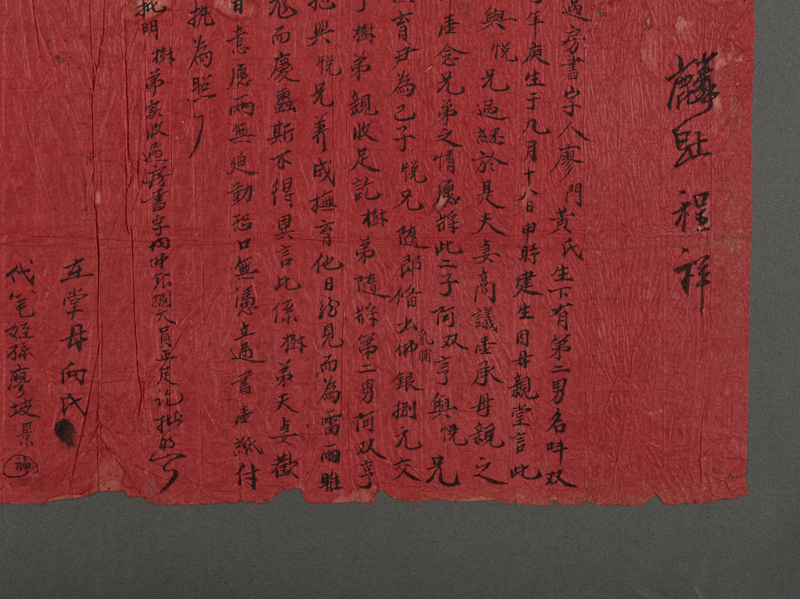 麟趾程祥
過房書字人廖門黃氏生下有第二男名叫双
年庚生于九月十八日申時建生因母親堂言此
與悅兄過繼於是夫妻商議乖承母親之
乖念兄弟之情愿將此二子阿双亨與悅兄
育尹為己子悅兄隨郎備出乳哺佛銀捌元交
樹弟親收足訖樹弟隨將第二男阿双亨
與悅兄養成撫育他日紛見而為雷雨雖
而慶螽斯不得異言此係樹弟夫妻歡
意愿兩無迫勤恐口無憑立過書壹紙付
执為照
批明樹弟实收過房書字內仲銀捌大員正足訖批的
在堂母向氏
代笔姪孫廖坡景